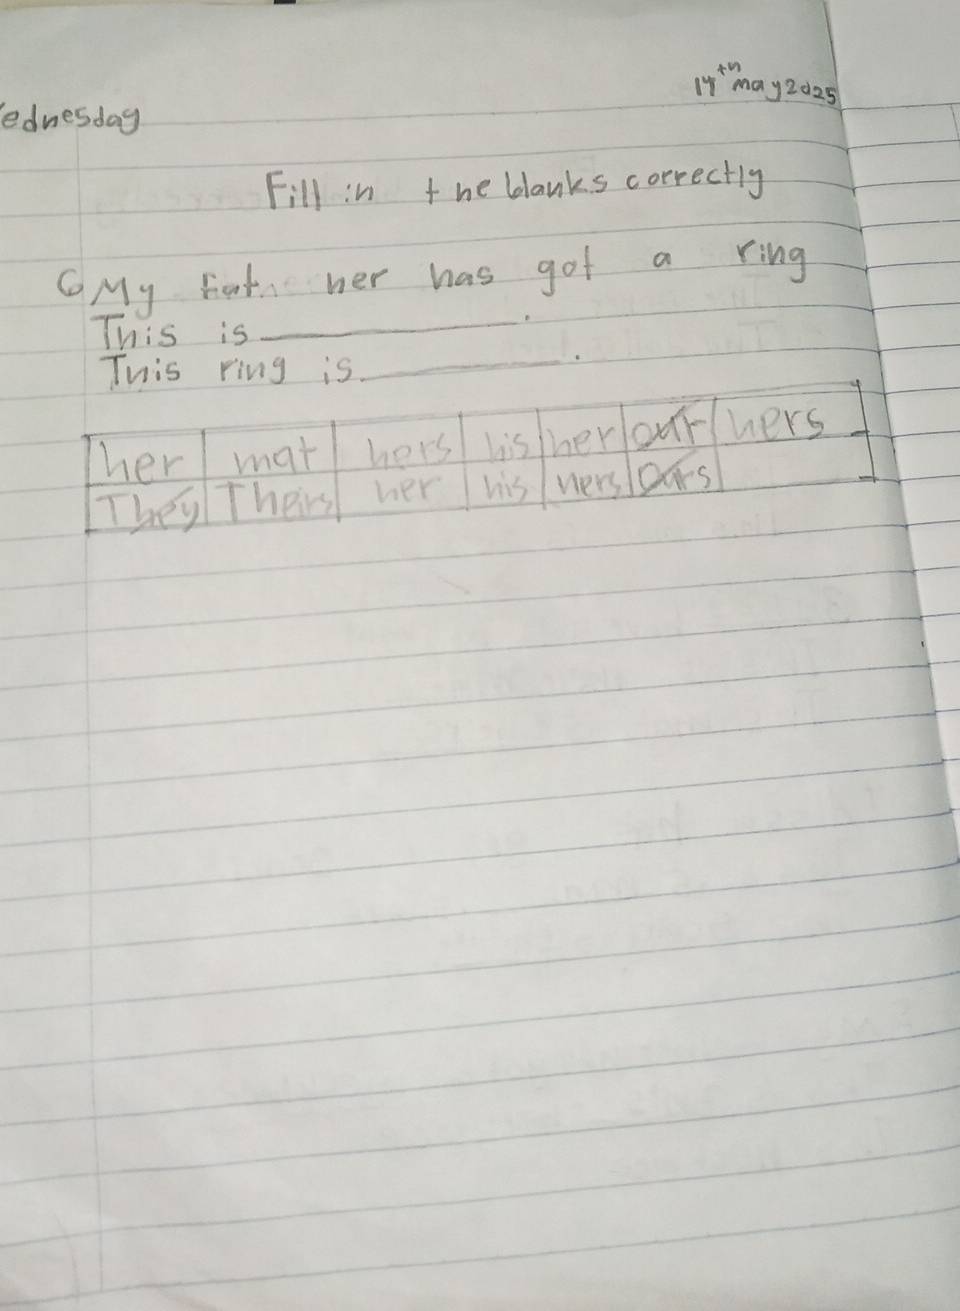 ednesday
14th may 2025
Fill in the blanks correctly
6 My father has got a ring
This is __________.
This ring is __________.
her mat hers his her our hers
They Theirs her his hers Ours